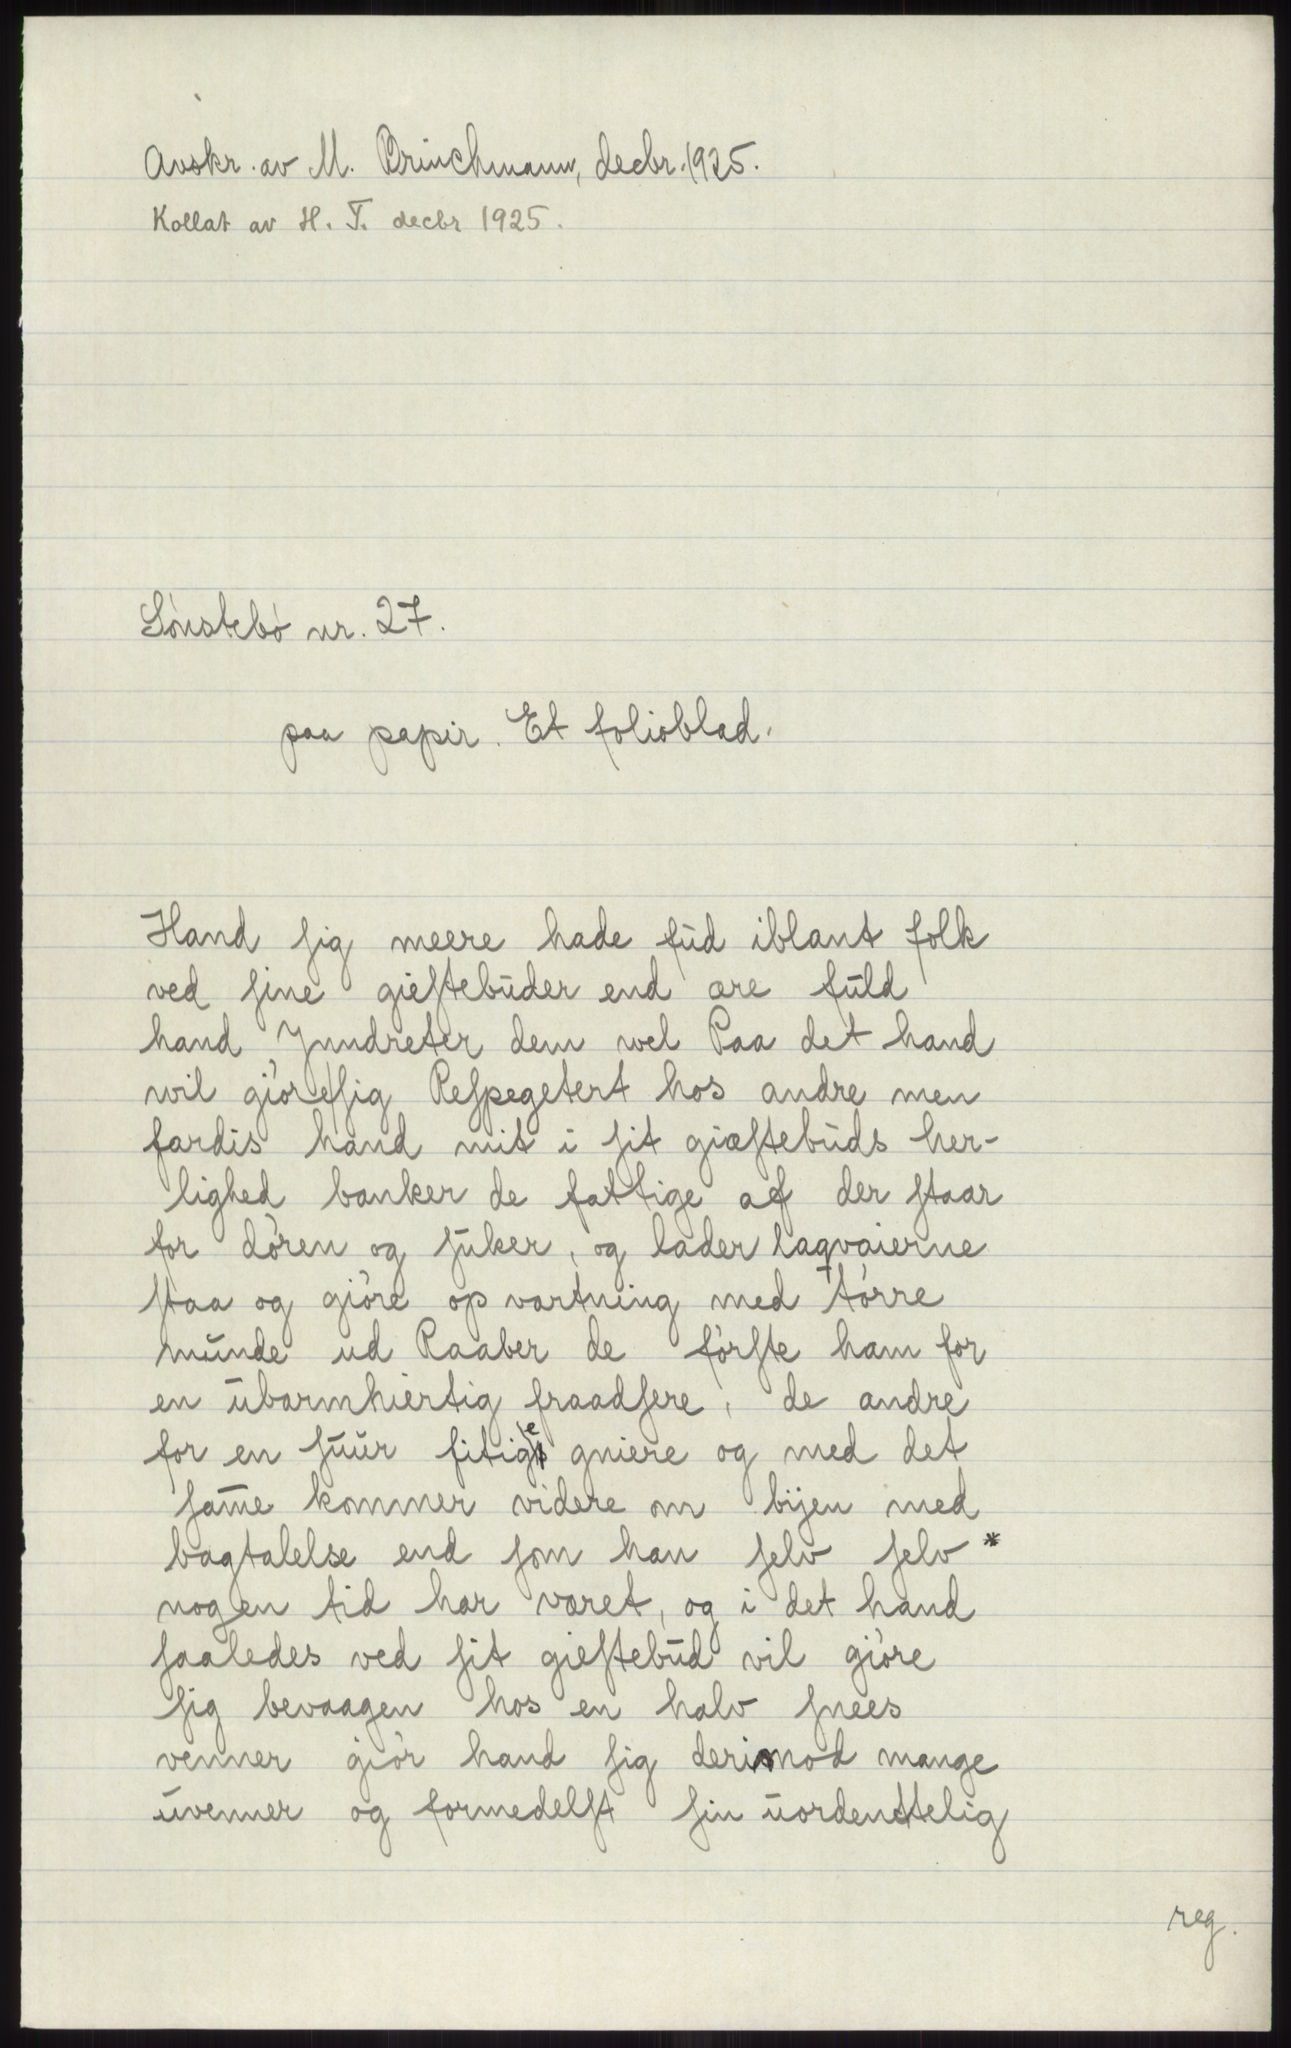 Avskr. av M. Brinchmann, decbr. 1925.
Kollat av H. T. decbr 1925.
Sönstebö nr. 27.
paa papir. Et folioblad.
Hand sig meere hade fud iblant folk
ved sine giestebuder end ære fuld
hand Jnndreter dem wel Paa det hand
wil giöre sig Respegetert hos andre men
fardis hand mit i sit giæstebuds her-
lighed banker de fattige af der staar
for dören og suker, og lader laqvaierne
staa og giöre op vartning med törre
munde ud Raaber de förste ham for
en ubarmhiertig fraadsere, de andre
for en suur fitige gniere og med det
same kommer videre om bijen med
bagtalelse end som han selv selv *
nogen tid har været, og i det hand
saaledes ved sit giestebud vil giöre
sig bevaagen hos en halv snees
venner giör hand sig derimod mange
uvenner og formedelst sin uordenttelig
reg.